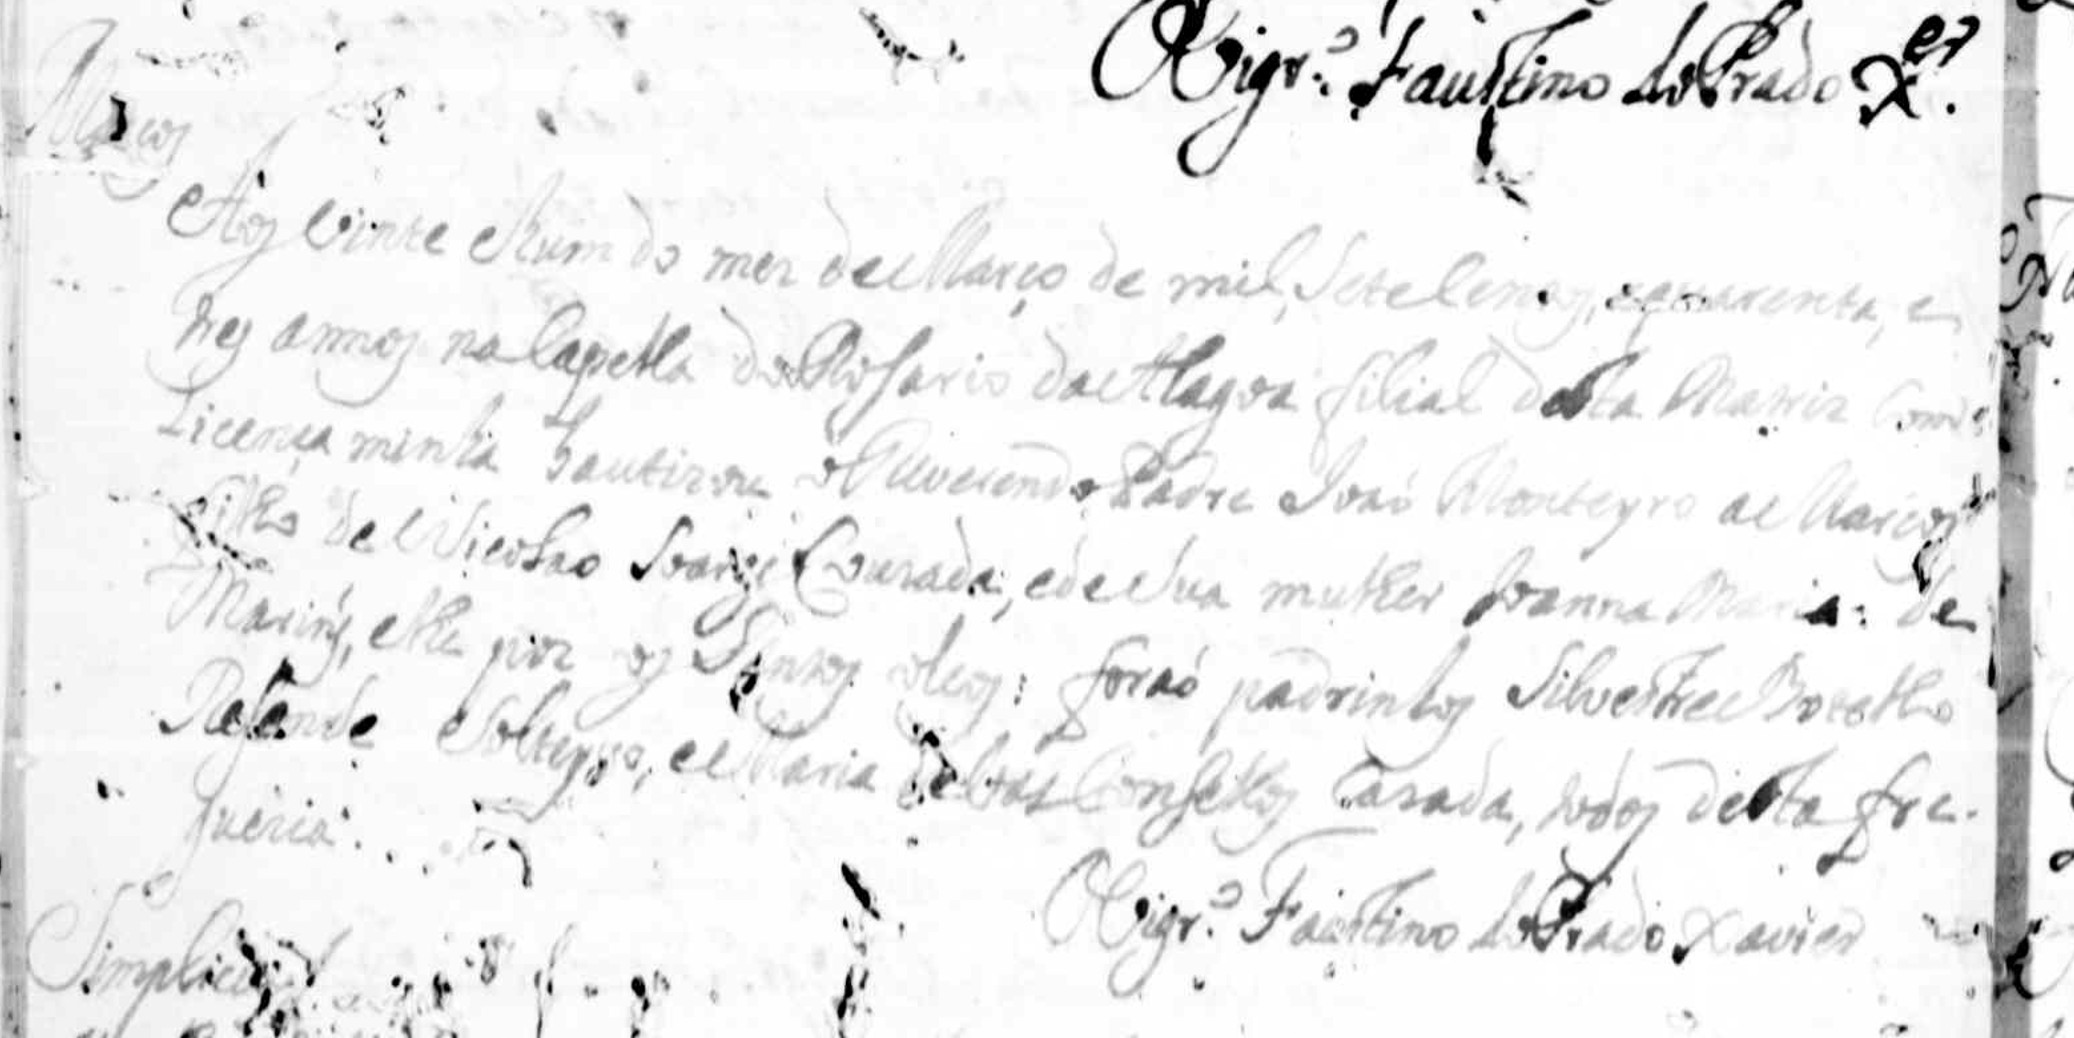 O Vigr.º Faustino do Prado X.er
Marcos
Aos vinte e hum do mez de Março de mil, Setecentos, e quarenta, e
tres annos na Capella do Rosario da Alagoa filial desta Matriz Com
Licença minha bautizou o Reverendo Padre Joaõ Monteyro a Marcos
filho de Nicolao Soares Courada, e de Sua mulher Joanna Maria: de
Marins, e lhe poz os Santos oleos: foraõ padrinhos Silvestre Botelho
Resende Solteyro, e Maria Conselhos Casada, todos desta fre-
guezia.
O Vigr.º Faustino do Prado Xavier
Simplicio